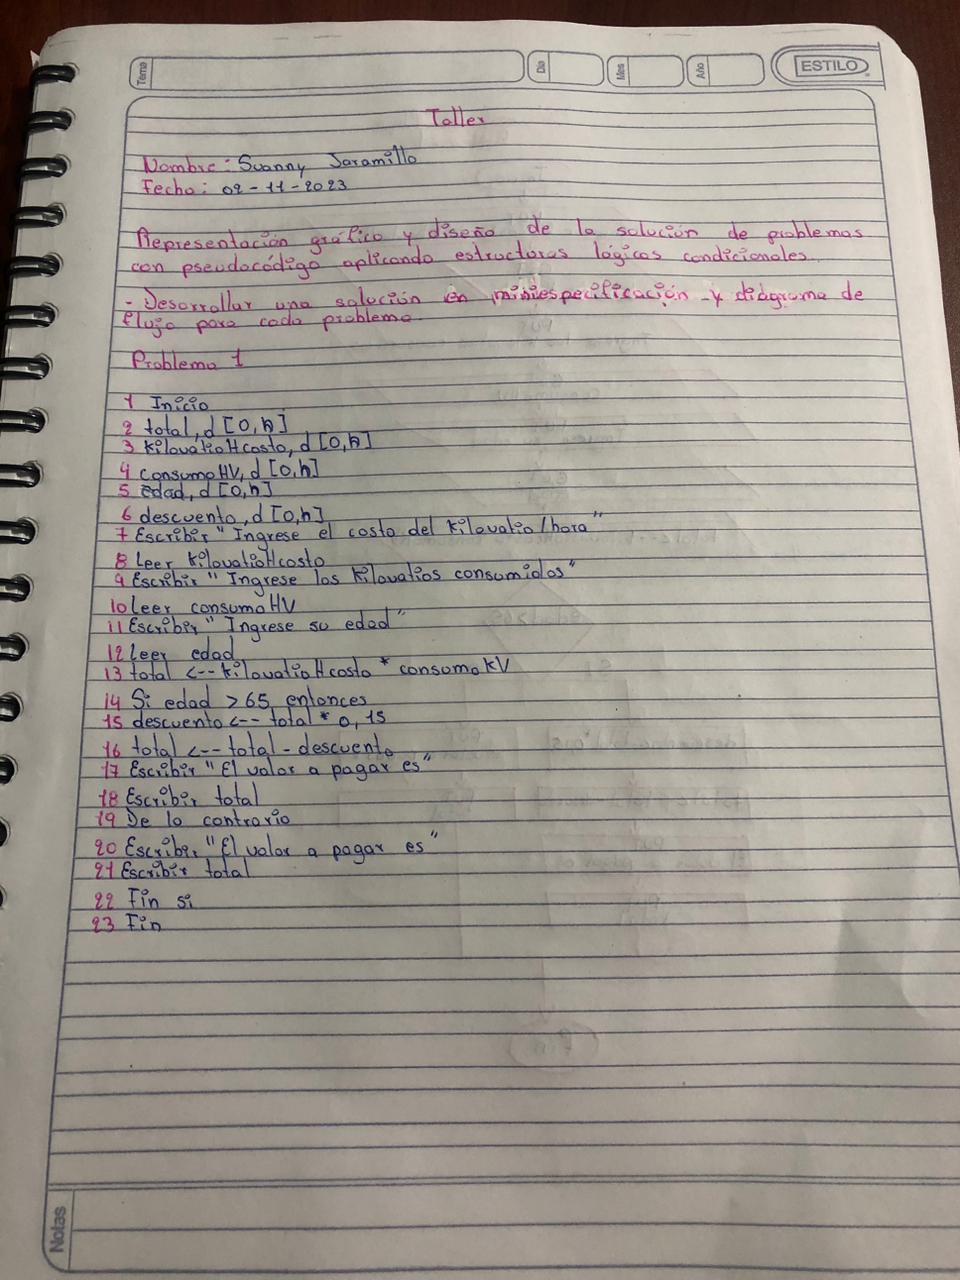 Tema
Dia
Mes
Año
ESTILO
Taller
Nombre: Suanny Jaramillo
Fecha: 02-11-2023
Representación gráfica y diseño de la solución de problemas
con pseudocódigo aplicando estructuras lógicas condicionales.
- Desarrollar una solución en miniespecificación y diagrama de
flujo para cada problema.
Problema 1
1 Inicio
2 total, d [0,n]
3 KilovatioHcosto, d [0,n]
4 consumoHV, d [0,n]
5 edad, d [0,n]
6 descuento, d [0,n]
7 Escribir "Ingrese el costo del Kilovatio/hora"
8 Leer KilovatioHcosto
9 Escribir "Ingrese los Kilovatios consumidos"
10 leer consumoHV
11 Escribir "Ingrese su edad"
12 leer edad
13 total <-- KilovatioHcosto * consumoKV
14 Si edad >65 entonces
15 descuento <-- total * 0,15
16 total <-- total - descuento
17 Escribir "El valor a pagar es"
18 Escribir total
19 De lo contrario
20 Escribir "El valor a pagar es"
21 Escribir total
22 Fin si
23 Fin
Notas